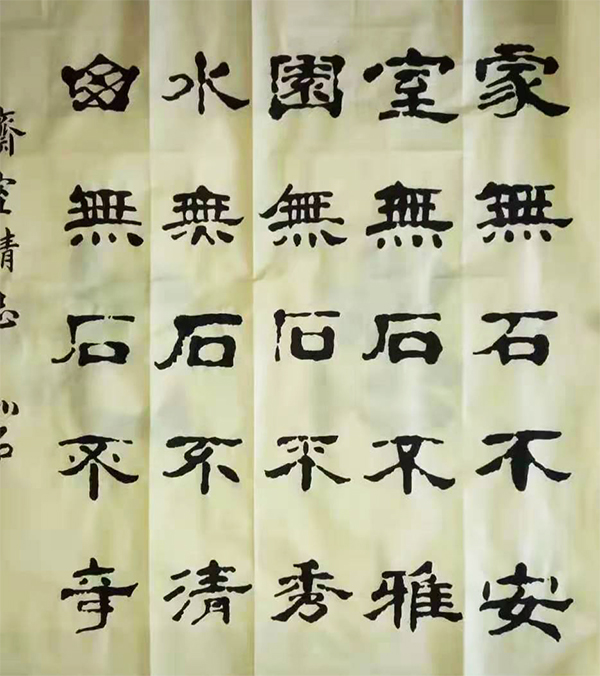 家無石不安
室無石不雅
園無石不秀
水無石不清
囪無石不奇
齋室清
石